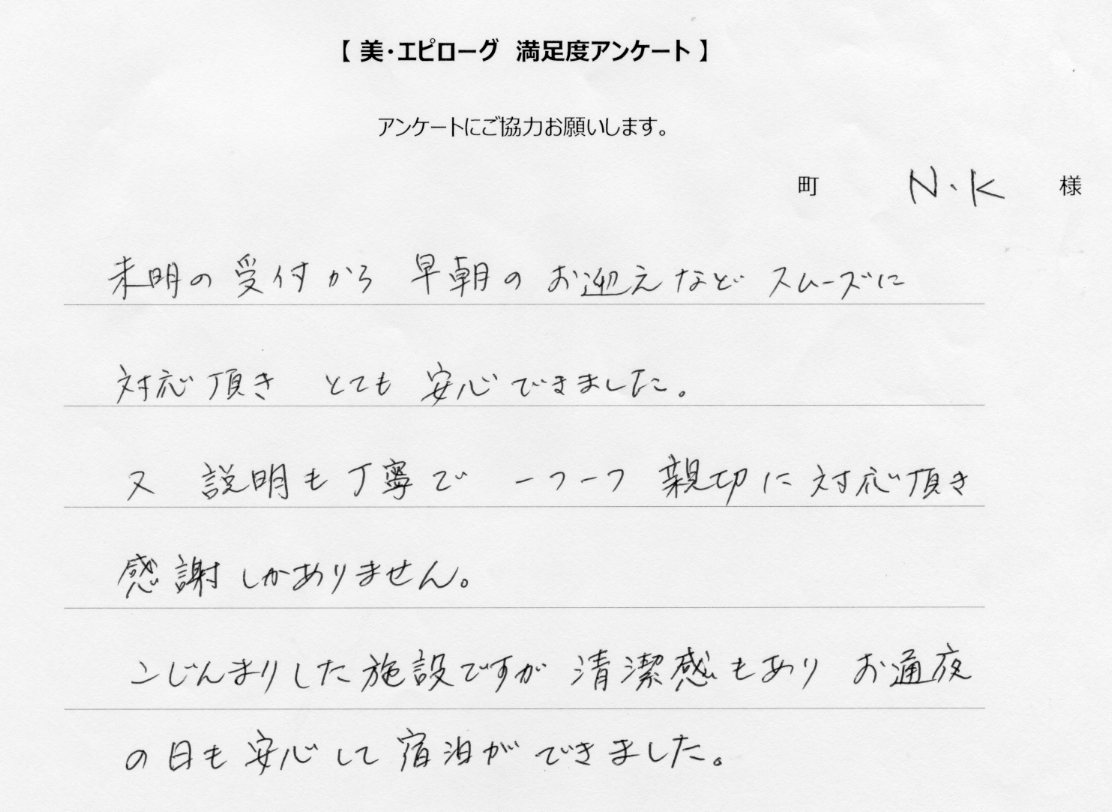 【 美・エピローグ 満足度アンケート 】
アンケートにご協力お願いします。
町 N・K 様
未明の受付から 早朝の お迎えなど スムーズに
対応頂き とても 安心できました。
又 説明も丁寧で 一つ一つ 親切に対応頂き
感謝しかありません。
こじんまりした施設ですが 清潔感もあり お通夜
の日も安心して宿泊ができました。